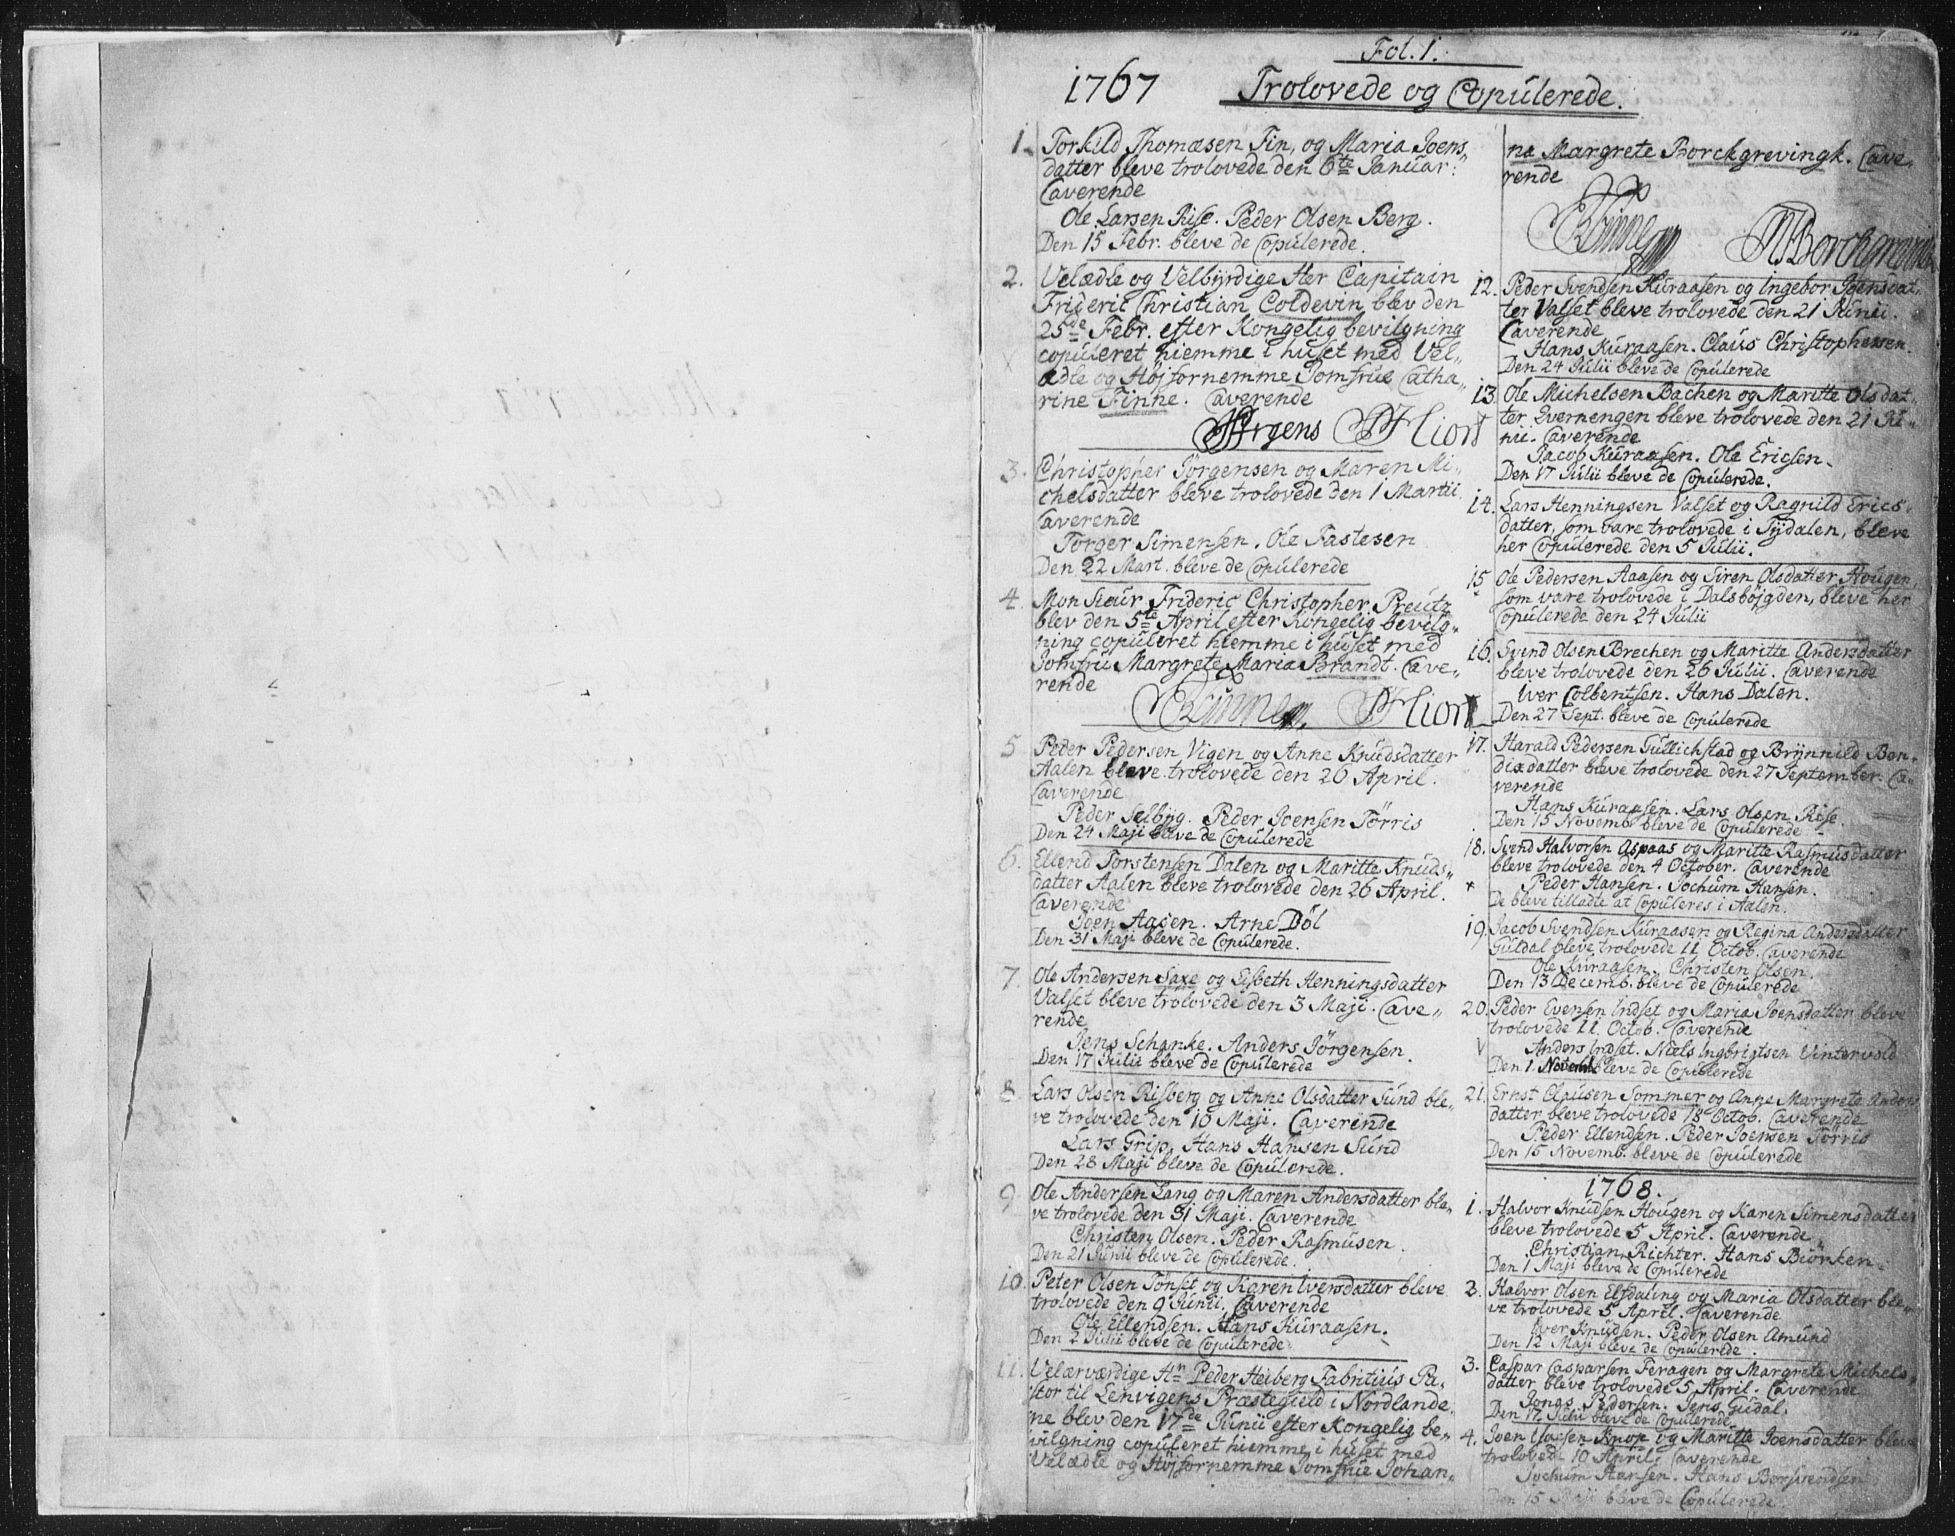 Fol. 1.
1767 Trolovede og Copulerede.
1. Torkild Thomæsen Fin, og Maria Joens„
datter bleve trolovede den 6te Januar:
Caverende
Ole Larsen Rise. Peder Olsen Berg.
Den 15 Febr. bleve de Copulerede.
2. Velædle og Velbyrdige Her Capitain
Frideric Christian Coldevin blev den
25de Febr. efter Kongelig bevilgning
copuleret hiemme i huset med Vel„
ædle og Højfornemme Jomfrue Catha„
rine Finne. Caverende
Irgens Hiort
3. Christopher Jörgensen og Maren Mi„
chelsdatter bleve trolovede den 1 Martii
Caverende
Törger Simensen. Ole Fastesen
Den 22 Mart. bleve de Copulerede
4. Mon Sieur Frideric Christopher Preutz
blev den 5te April efter Kongelig bevilg„
ning copuleret hiemme i huset med
Jomfru Margrete Maria Brandt. Cave„
rende
Finne Hiort
5. Peder Pedersen Vigen og Anne Knudsdatter
Aalen bleve trolovede den 26 April.
Caverende
Peder Selbyg. Peder Joensen Törris
Den 24 Maji bleve de Copulerede
6. Ellend Torstensen Dalen og Maritte Knuds„
datter Aalen bleve trolovede den 26 April.
Caverende
Joen Aasen. Arne Döl
Den 31 Maji bleve de Copulerede.
7. Ole Andersen Saxe og Lisbeth Henningsdatter
Valset bleve trolovede den 3 Maji. Cave„
rende
Jens Schanke. Anders Jörgensen.
Den 17 Julii bleve de Copulerede
8. Lars Olsen Risberg og Anne Olsdatter Sund ble„
ve trolovede den 10 Maji. Caverende
Lars Grip. Hans Hansen Sund
Den 28 Maji bleve de Copulerede.
9. Ole Andersen Lang og Maren Andersdatter ble„
ve trolovede den 31 Maji. Caverende
Christen Olsen. Peder Rasmusen.
Den 21 Junii bleve de Copulerede.
10. Peter Olsen Tönset og Karen Iversdatter bleve
trolovede den 9 Junii. Caverende
Ole Ellendsen. Hans Kuraasen.
Den 2 Julii bleve de Copulerede
11. Velærværdige Hn Peder Heiberg Fabritius Pa„
stor til Lenvigens Præstegield i Nordlande„
ne blev den 17de Junii efter Kongelig be„
vilgning copuleret hiemme i huset med
Velædle og Højfornemme Jomfrue Johan„
na Margrete Borckgrevingk. Cave„
rende
Finne Borchgrevink
12. Peder Svendsen Kuraasen og Ingebor Joensdat„
ter Valset bleve trolovede den 21 Junii.
Caverende
Hans Kuraasen. Claus Christophersen.
Den 24 Julii bleve de Copulerede
13. Ole Michelsen Bachen og Maritte Olsdat„
ter Evernengen bleve trolovede den 21 Ju„
nii. Caverende
Jacob Kuraasen. Ole Ericsen.
Den 17 Julii bleve de Copulerede.
14. Lars Henningsen Valset og Ragnild Erics„
datter, som vare trolovede i Tydalen, bleve
her Copulerede den 5 Julii.
15. Ole Pedersen Aaasen og Siren Olsdatter Hougen,
som vare trolovede i Dalsbøjgden, bleve her
Copulerede den 24 Julii
16. Svend Olsen Brechen og Maritte Andersdatter
bleve trolovede den 26 Julii. Caverende
Iver Colbentsen. Hans Dalen.
Den 27 Sept. bleve de Copulerede
17. Harald Pedersen Gullichstad og Brynnild Ben„
dixdatter bleve trolovede den 27 September. Ca„
verende
Hans Kuraasen. Lars Olsen Rise.
Den 15 Novemb. bleve de Copulerede
18. Svend Halvorsen Aspaas og Maritte Rasmusdatter
bleve trolovede den 4 October. Caverende
Peder Hansen. Jochum Hansen.
De bleve tilladte at Copuleres i Aalen.
19. Jacob Svendsen Kuraasen og Regina Andersdatter
Guldal bleve trolovede 11 Octob. Caverende
Ole Kuraasen. Christen Olsen.
Den 13 Decemb. bleve de Copulerede
20. Peder Evensen Indset og Maria Joensdatter bleve
trolovede 11 Octob. Caverende
Anders Indset. Niels Ingbrigtsen Vintervold
Den 1 Novemb. bleve de Copulerede
21. Ernst Clausen Sommer og Anne Margrete Anders„
datter bleve trolovede 18 Octob. Caverende
Peder Ellendsen. Peder Joensen Törris
Den 15 Novemb. bleve de Copulerede
1768.
1. Halvor Knudsen Hougen og Karen Simensdatter
bleve trolovede 5 April. Caverende
Christian Richter. Hans Biörken.
Den 1 Maji bleve de Copulerede
2. Halvor Olsen Elfdaling og Maria Olsdatter ble„
ve trolovede 5 April. Caverende
Iver Knudsen. Peder Olsen Amund
Den 12 Maji bleve de Copulerede.
3. Caspar Casparsen Feragen og Margrete Michels„
datter bleve trolovede 5 April. Caverende
Jonas Pedersen. Jens Guldal.
Den 17 Julii bleve de Copulerede
4. Joen Knop og Maritte Joensdatter bleve
trolovede 10 April. Caverende
Jochum Hansen. Hans
Den 15 Maji bleve de Copulerede.